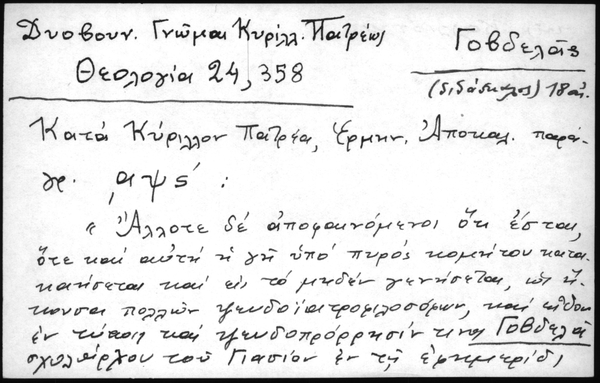 Δυοβουν. Γνῶμαι Κυρίλλ. Πατρέως
Θεολογία 24, 358
Γοβδελᾶς
(διδάσκαλος) 18 αἰ.
Κατά Κύριλλον Πατρέα, Ἑρμην. Ἀποκαλ. παρά-
γρ. ͵αψς΄ :
« Ἄλλοτε δέ ἀποφαινόμενοι ὅτι ἔσται,
ὅτε καί αὐτή ἡ γῆ ὑπό πυρός κομήτου κατα-
καήσεται καί εἰς τό μηδέν γενήσεται, ὡς ἤ-
κουσα πολλῶν ψευδοϊατροφιλοσόφων, καί εἶδον
ἐν τύποις καί ψευδοπρόρρησίν τινος Γοβδελᾶ
σχολάρχου τοῦ Γιασίου ἐν τῇ ἐφημερίδι